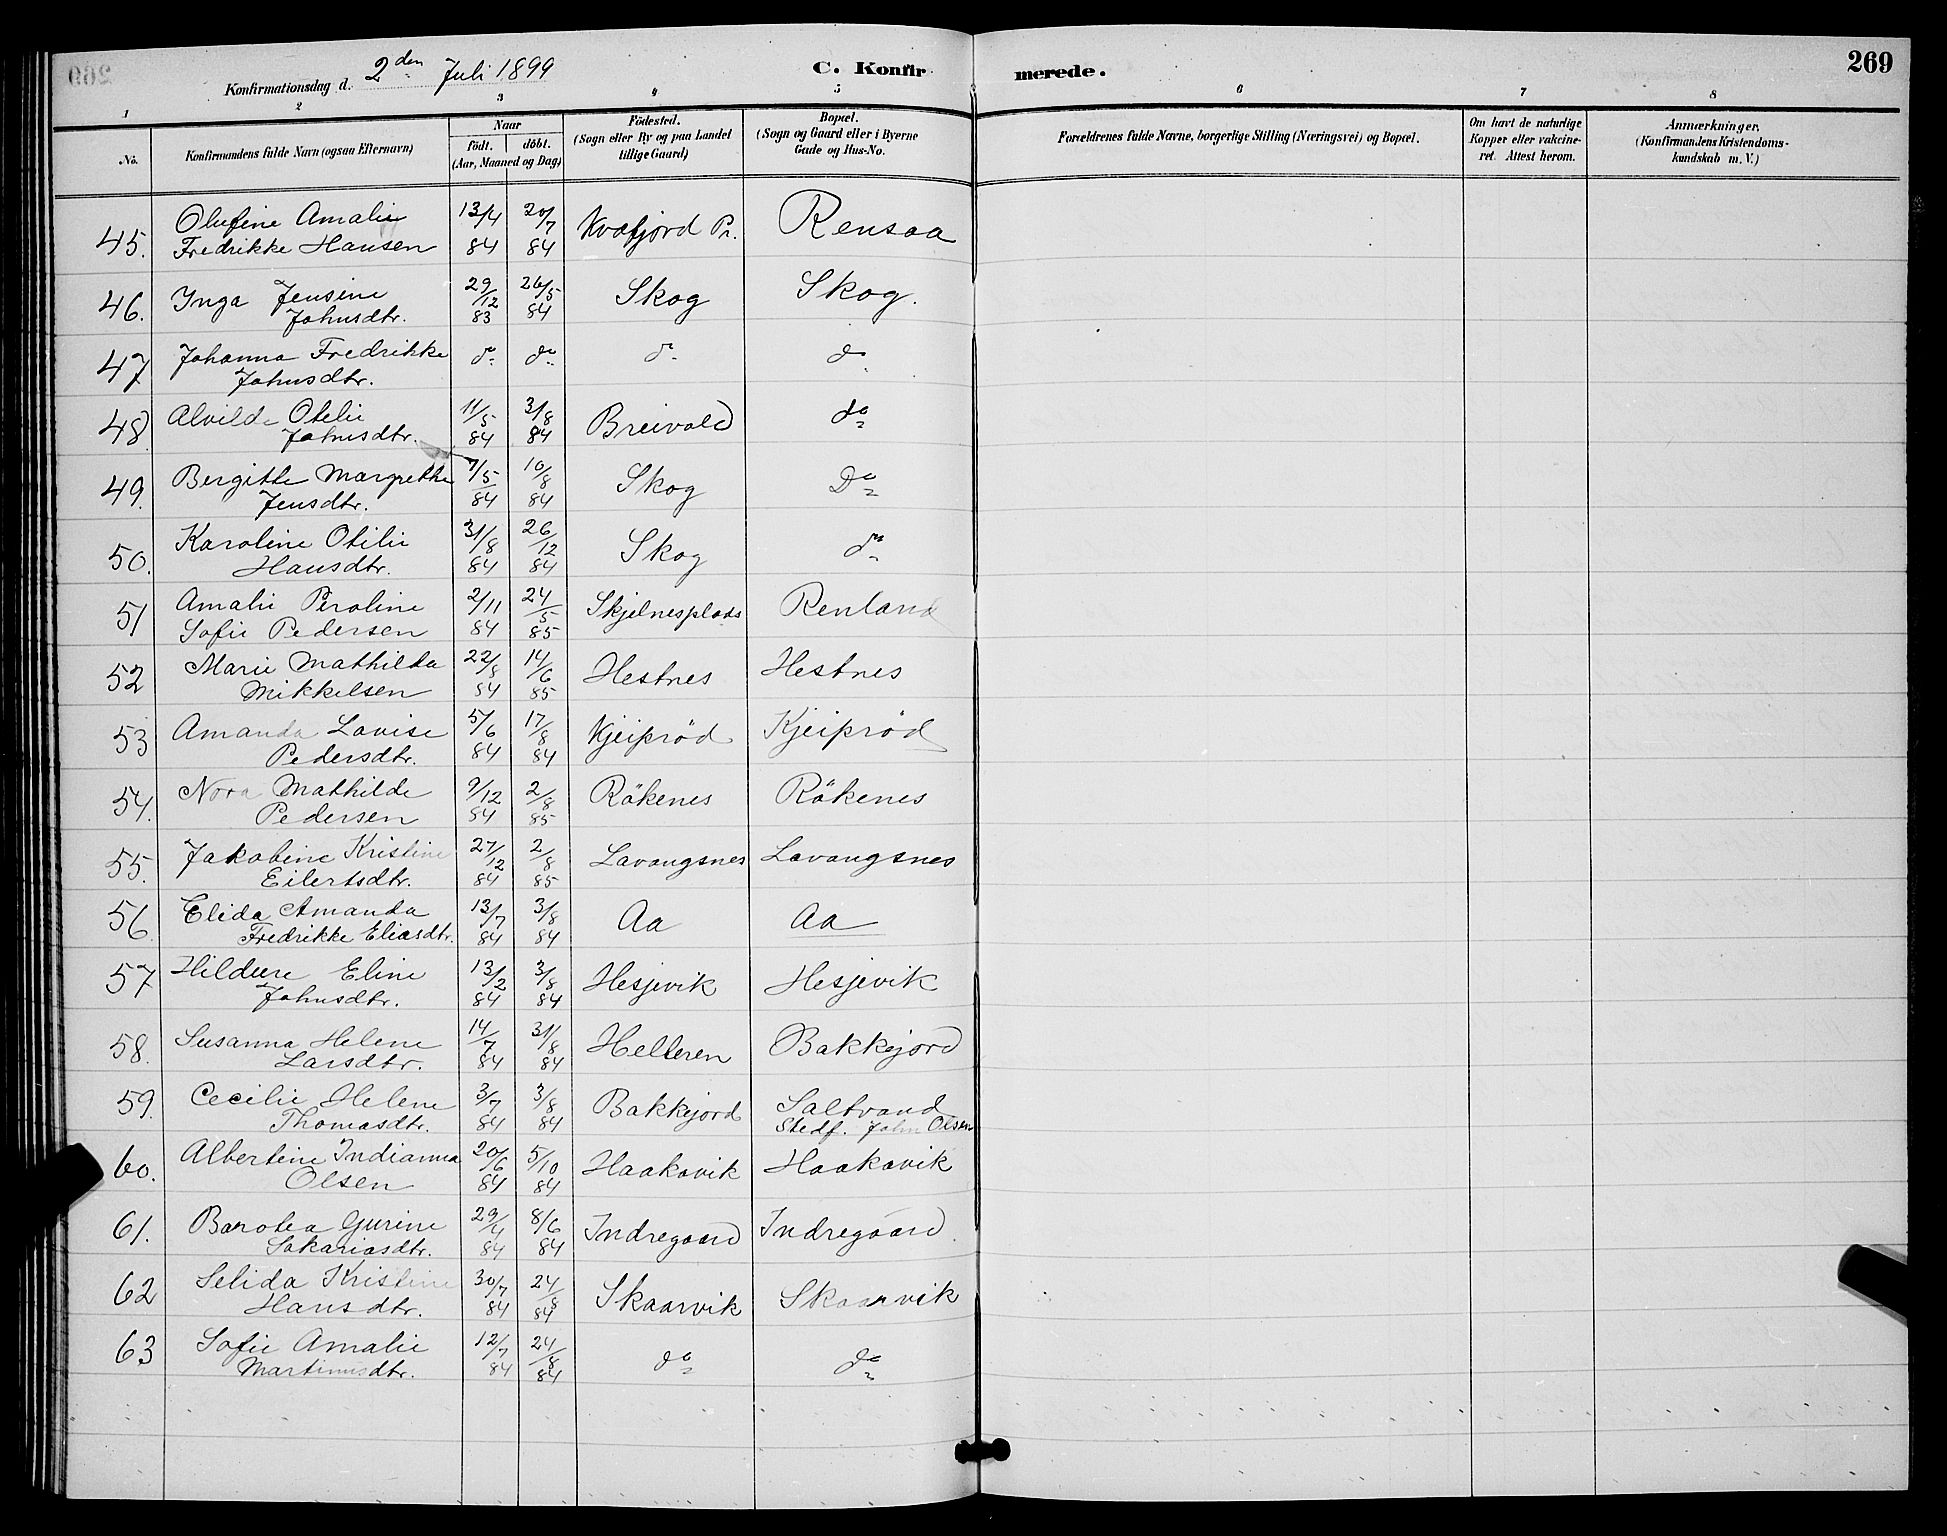 269
Konfirmationsdag d. 2den Juli 1899
C. Konfirmerede.
1 2 3 4 5 6 7 8
No.
Konfirmandens fulde Navn (ogsaa Efternavn)
Naar
födt. döbt.
(Aar, Maaned og Dag)
Födested.
(Sogn eller By og paa Landet
tillige Gaard)
Bopæl.
(Sogn og Gaard eller i Byerne
Gade og Hus-No.
Forældrenes fulde Navne, borgerlige Stilling (Næringsvei) og Bopæl.
Om havt de naturlige
Kopper eller vakcine-
ret. Attest herom.
Anmærkninger.
(Konfirmandens Kristendoms-
kundskab m. V.)
45. Olufine Amalie Fredrikke Hansen 13/4 84 20/7 84 Kvæfjord Pr. Rensaa
46. Inga Jensine Johnsdtr. 29/12 83 26/5 84 Skog Skog.
47 Johanna Fredrikke Johnsdtr. do do do do
48. Alvilde Otelie Johnsdtr. 11/5 84 3/8 84 Breivold do
49. Bergitte Margrethe Jensdtr. 7/5 84 10/8 84 Skog Do
50. Karoline Otilie Hansdtr. 31/8 84 26/12 84 Skog do
51 Amalie Peroline Sofie Pedersen 2/11 84 24/5 85 Skjelnesplads Renland
52 Marie Mathilda Mikkelsen 22/8 84 14/6 85 Hestnes Hestnes
53 Amanda Lovise Pedersdtr. 5/6 84 17/8 84 Kjeiprød Kjeiprød
54. Nora Mathilde Pedersen 9/12 84 2/8 85 Rökenes Rökenes
55. Jakobine Kristine Eilertsdtr. 27/12 84 2/8 85 Lavangsnes Lavangsnes
56. Elida Amanda Fredrikke Eliasdtr. 13/7 84 3/8 84 Aa Aa
57 Hildure Eline Johnsdtr. 13/2 84 3/8 84 Hesjevik Hesjevik
58. Susanna Helene Larsdtr. 14/7 84 31/8 84 Helleren Bakkejord
59. Cecilie Helene Thomasdtr. 3/7 84 3/8 84 Bakkejord Saltvand Stedf. John Olsen
60. Albertine Indianna Olsen 20/6 84 5/10 84 Haakavik Haakavik
61. Barolea Gurine Sakariasdtr. 29/4 84 8/6 84 Indregaard Indregaard.
62 Selida Kristine Hansdtr. 30/7 84 24/8 84 Skaarvik Skaarvik
63 Sofie Amalie Martinusdtr. 12/7 84 24/8 84 do do